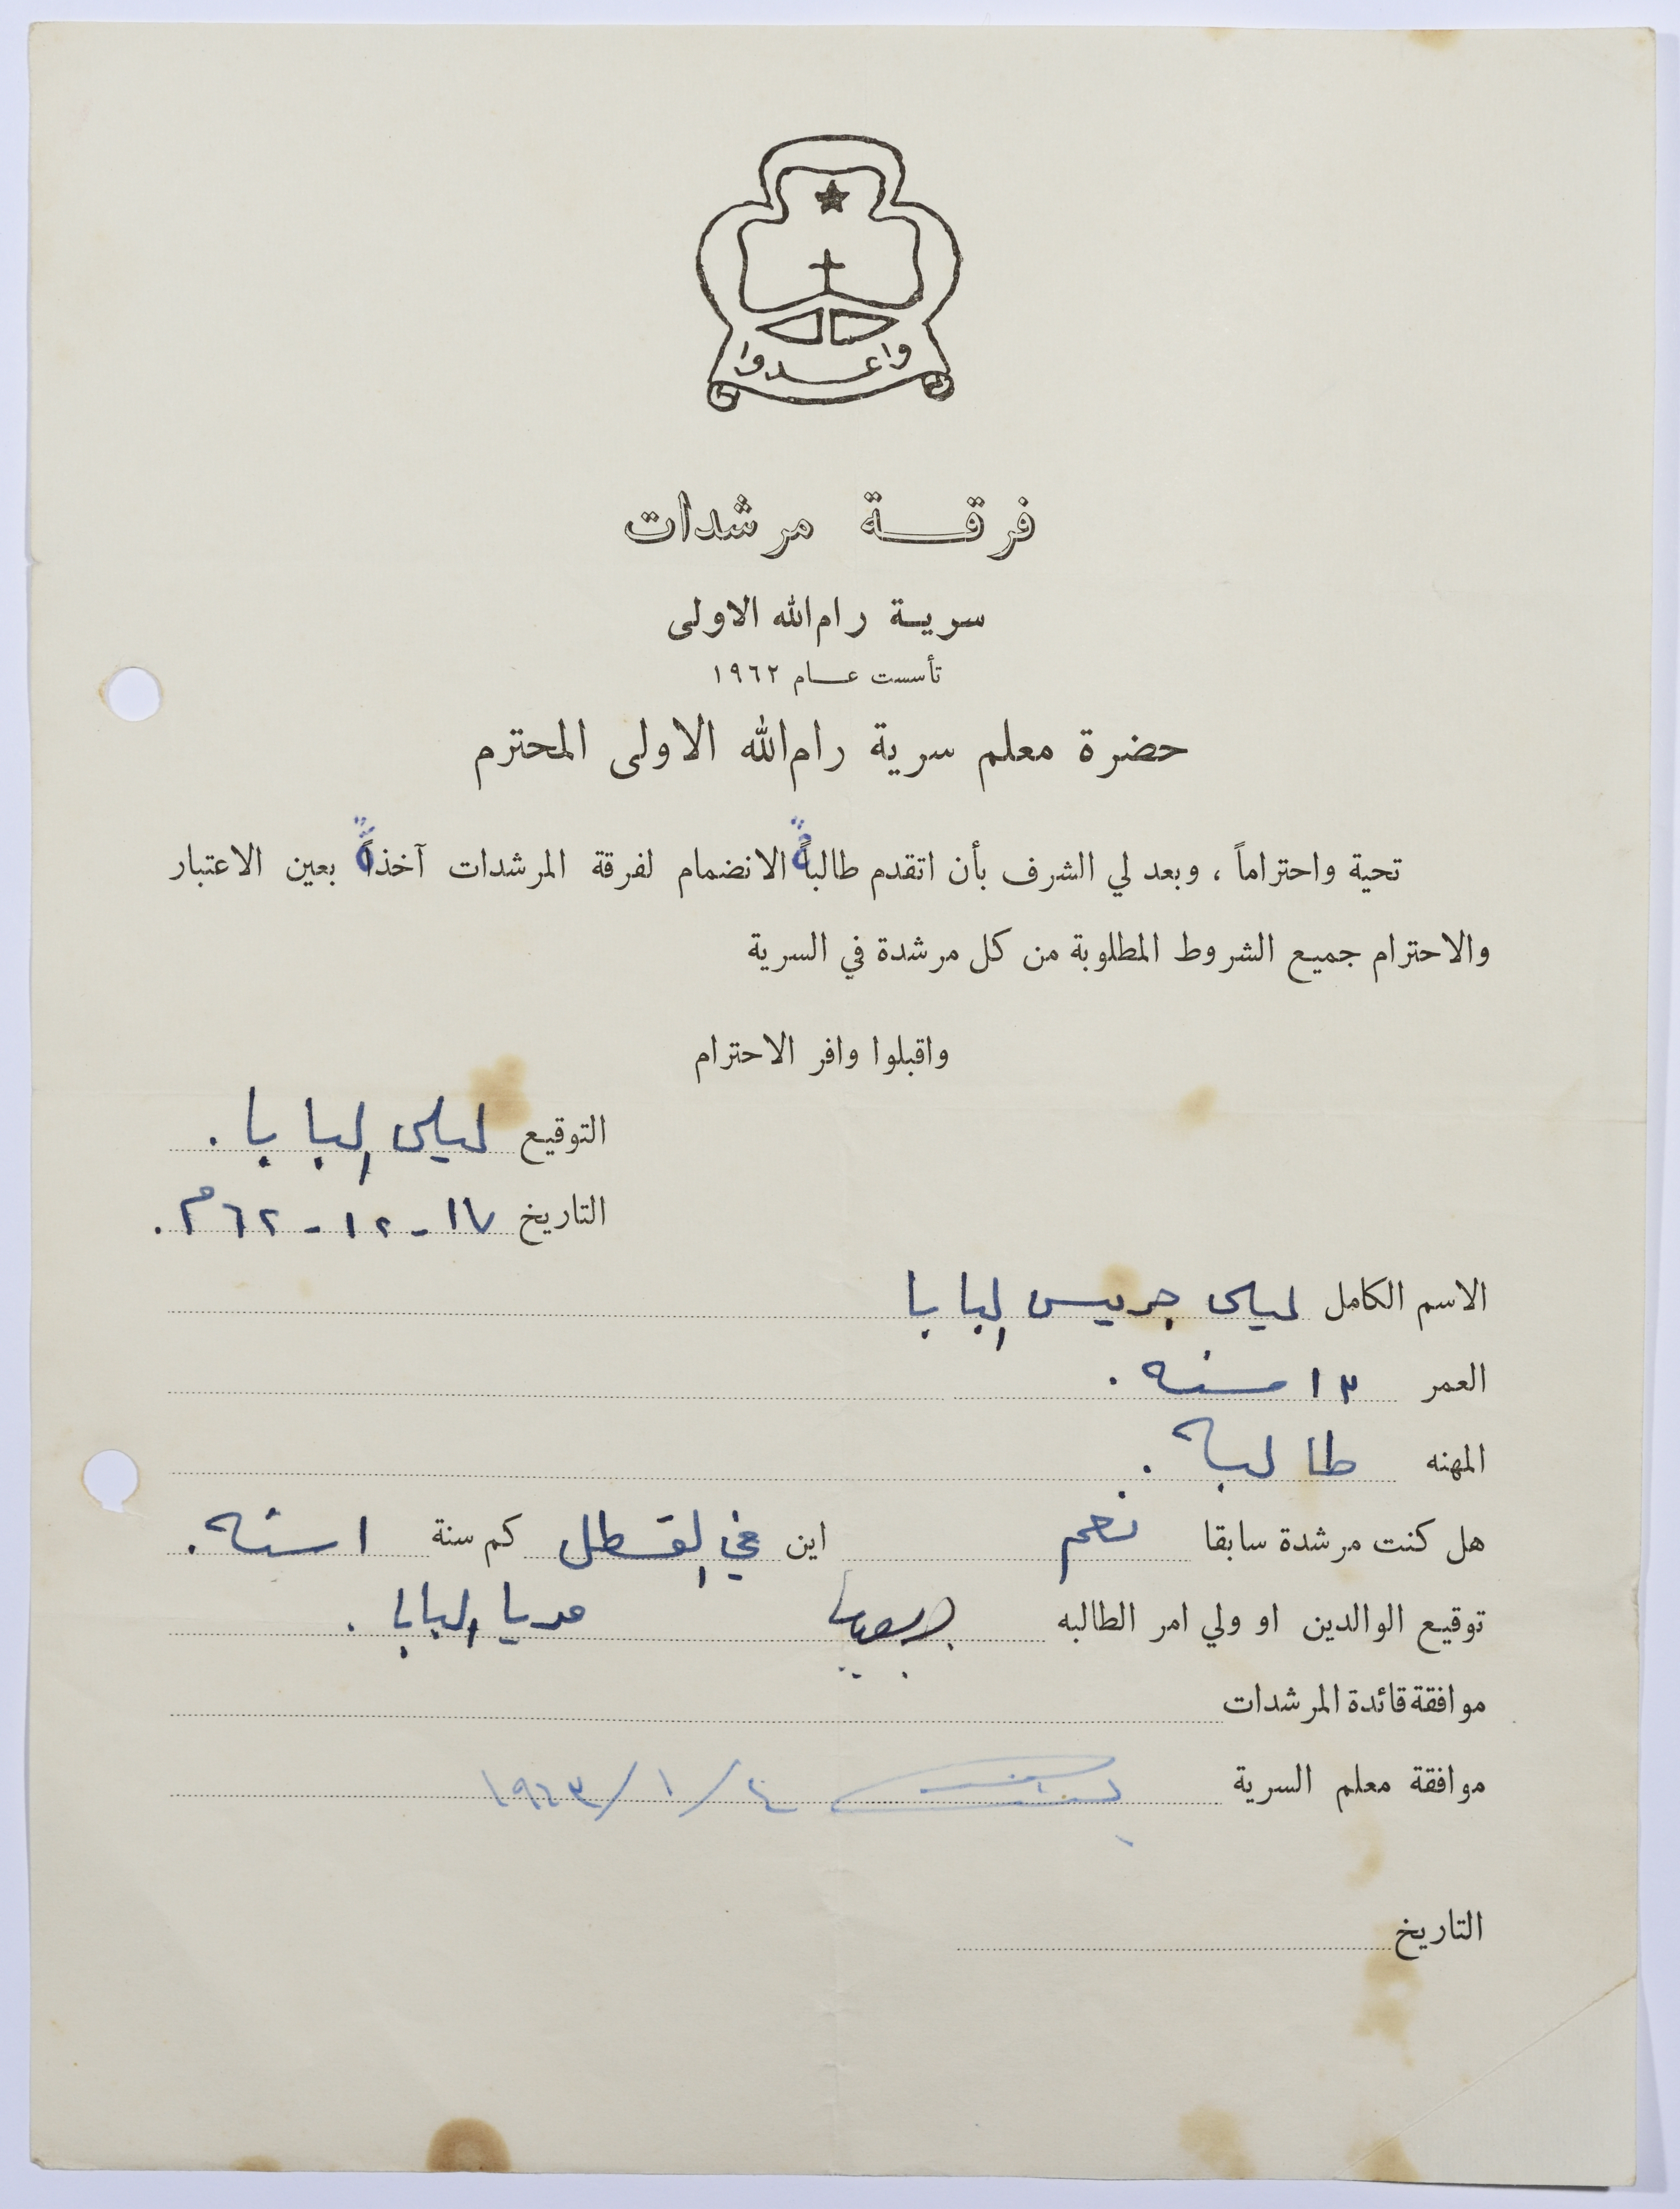 واعدوا
فرقة مرشدات
سرية رام الله الاولى
تأسست عام ١٩٦٢
حضرة معلم سرية رام الله الاولى المحترم
تحية واحتراماً ، وبعد لي الشرف بأن اتقدم طالبةً الانضمام لفرقة المرشدات آخذةً بعين الاعتبار
والاحترام جميع الشروط المطلوبة من كل مرشدة في السرية
واقبلوا وافر الاحترام
التوقيع ليلى البابا .
التاريخ ١٧ - ١٢ - ٦٢م .
الاسم الكامل ليلى جريس البابا
العمر ١٣ سنه .
المهنه طالبه .
هل كنت مرشدة سابقا نعم اين في القسطل كم سنة ١ سنه .
توقيع الوالدين او ولي امر الطالبه البابا .
موافقة قائدة المرشدات
موافقة معلم السرية ٤/١/١٩٦٣
التاريخ